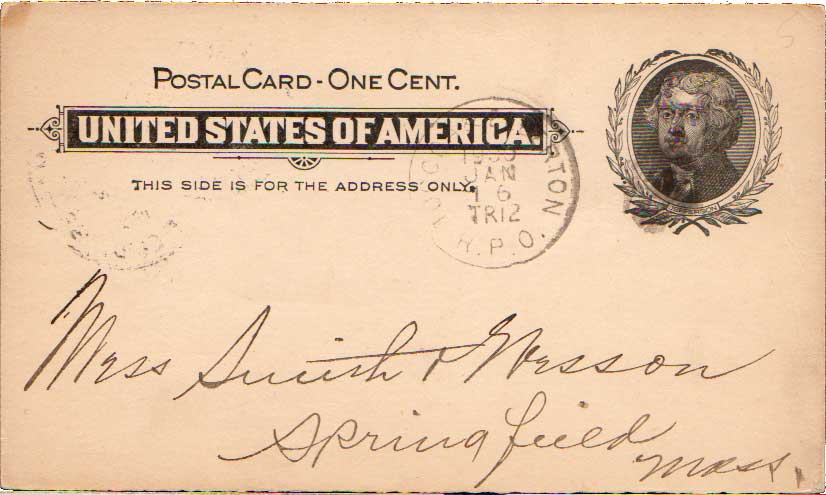 POSTAL CARD - ONE CENT.
UNITED STATES OF AMERICA.
THIS SIDE IS FOR THE ADDRESS ONLY.
JEFFERSON
TON
JAN
16
TR12
R.P.O.
Mess Smith & Wesson
Springfield
Mass.